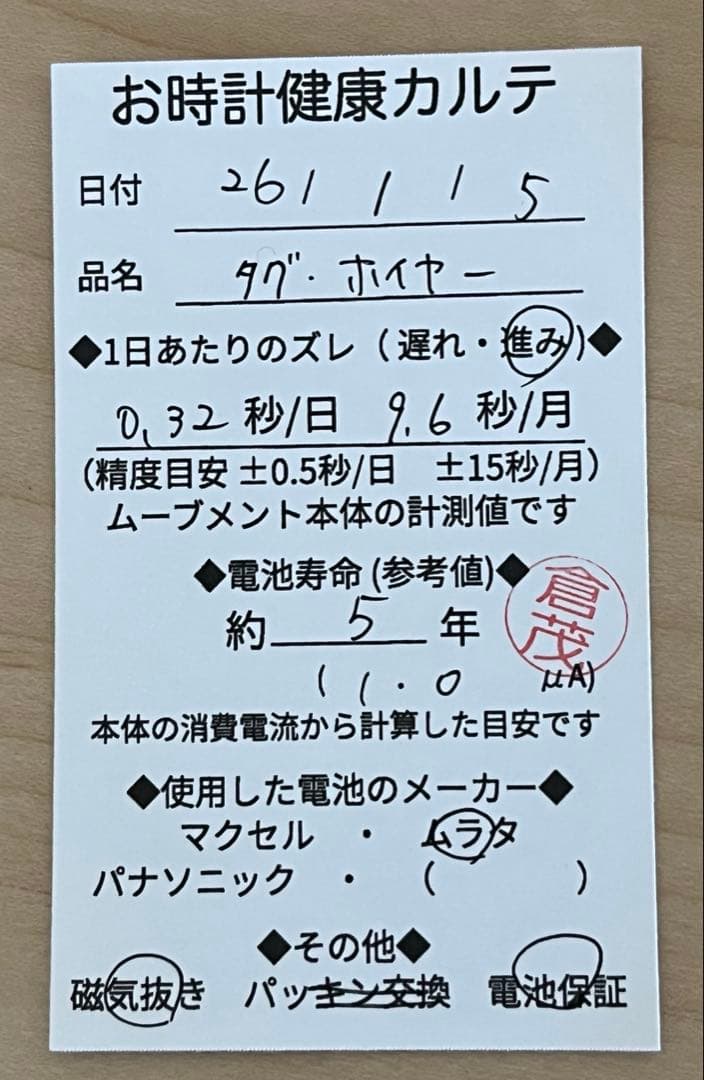 お時計健康カルテ
日付 26/1/15
品名 タグ・ホイヤー
◆1日あたりのズレ(遅れ・進み)◆
0.32秒/日 9.6秒/月
(精度目安±0.5秒/日 ±15秒/月)
ムーブメント本体の計測値です
◆電池寿命(参考値)◆
約5年
倉茂
(1.0 μA)
本体の消費電流から計算した目安です
◆使用した電池のメーカー◆
マクセル ・ ムラタ
パナソニック ・ ( )
◆その他◆
磁気抜き パッキン交換 電池保証